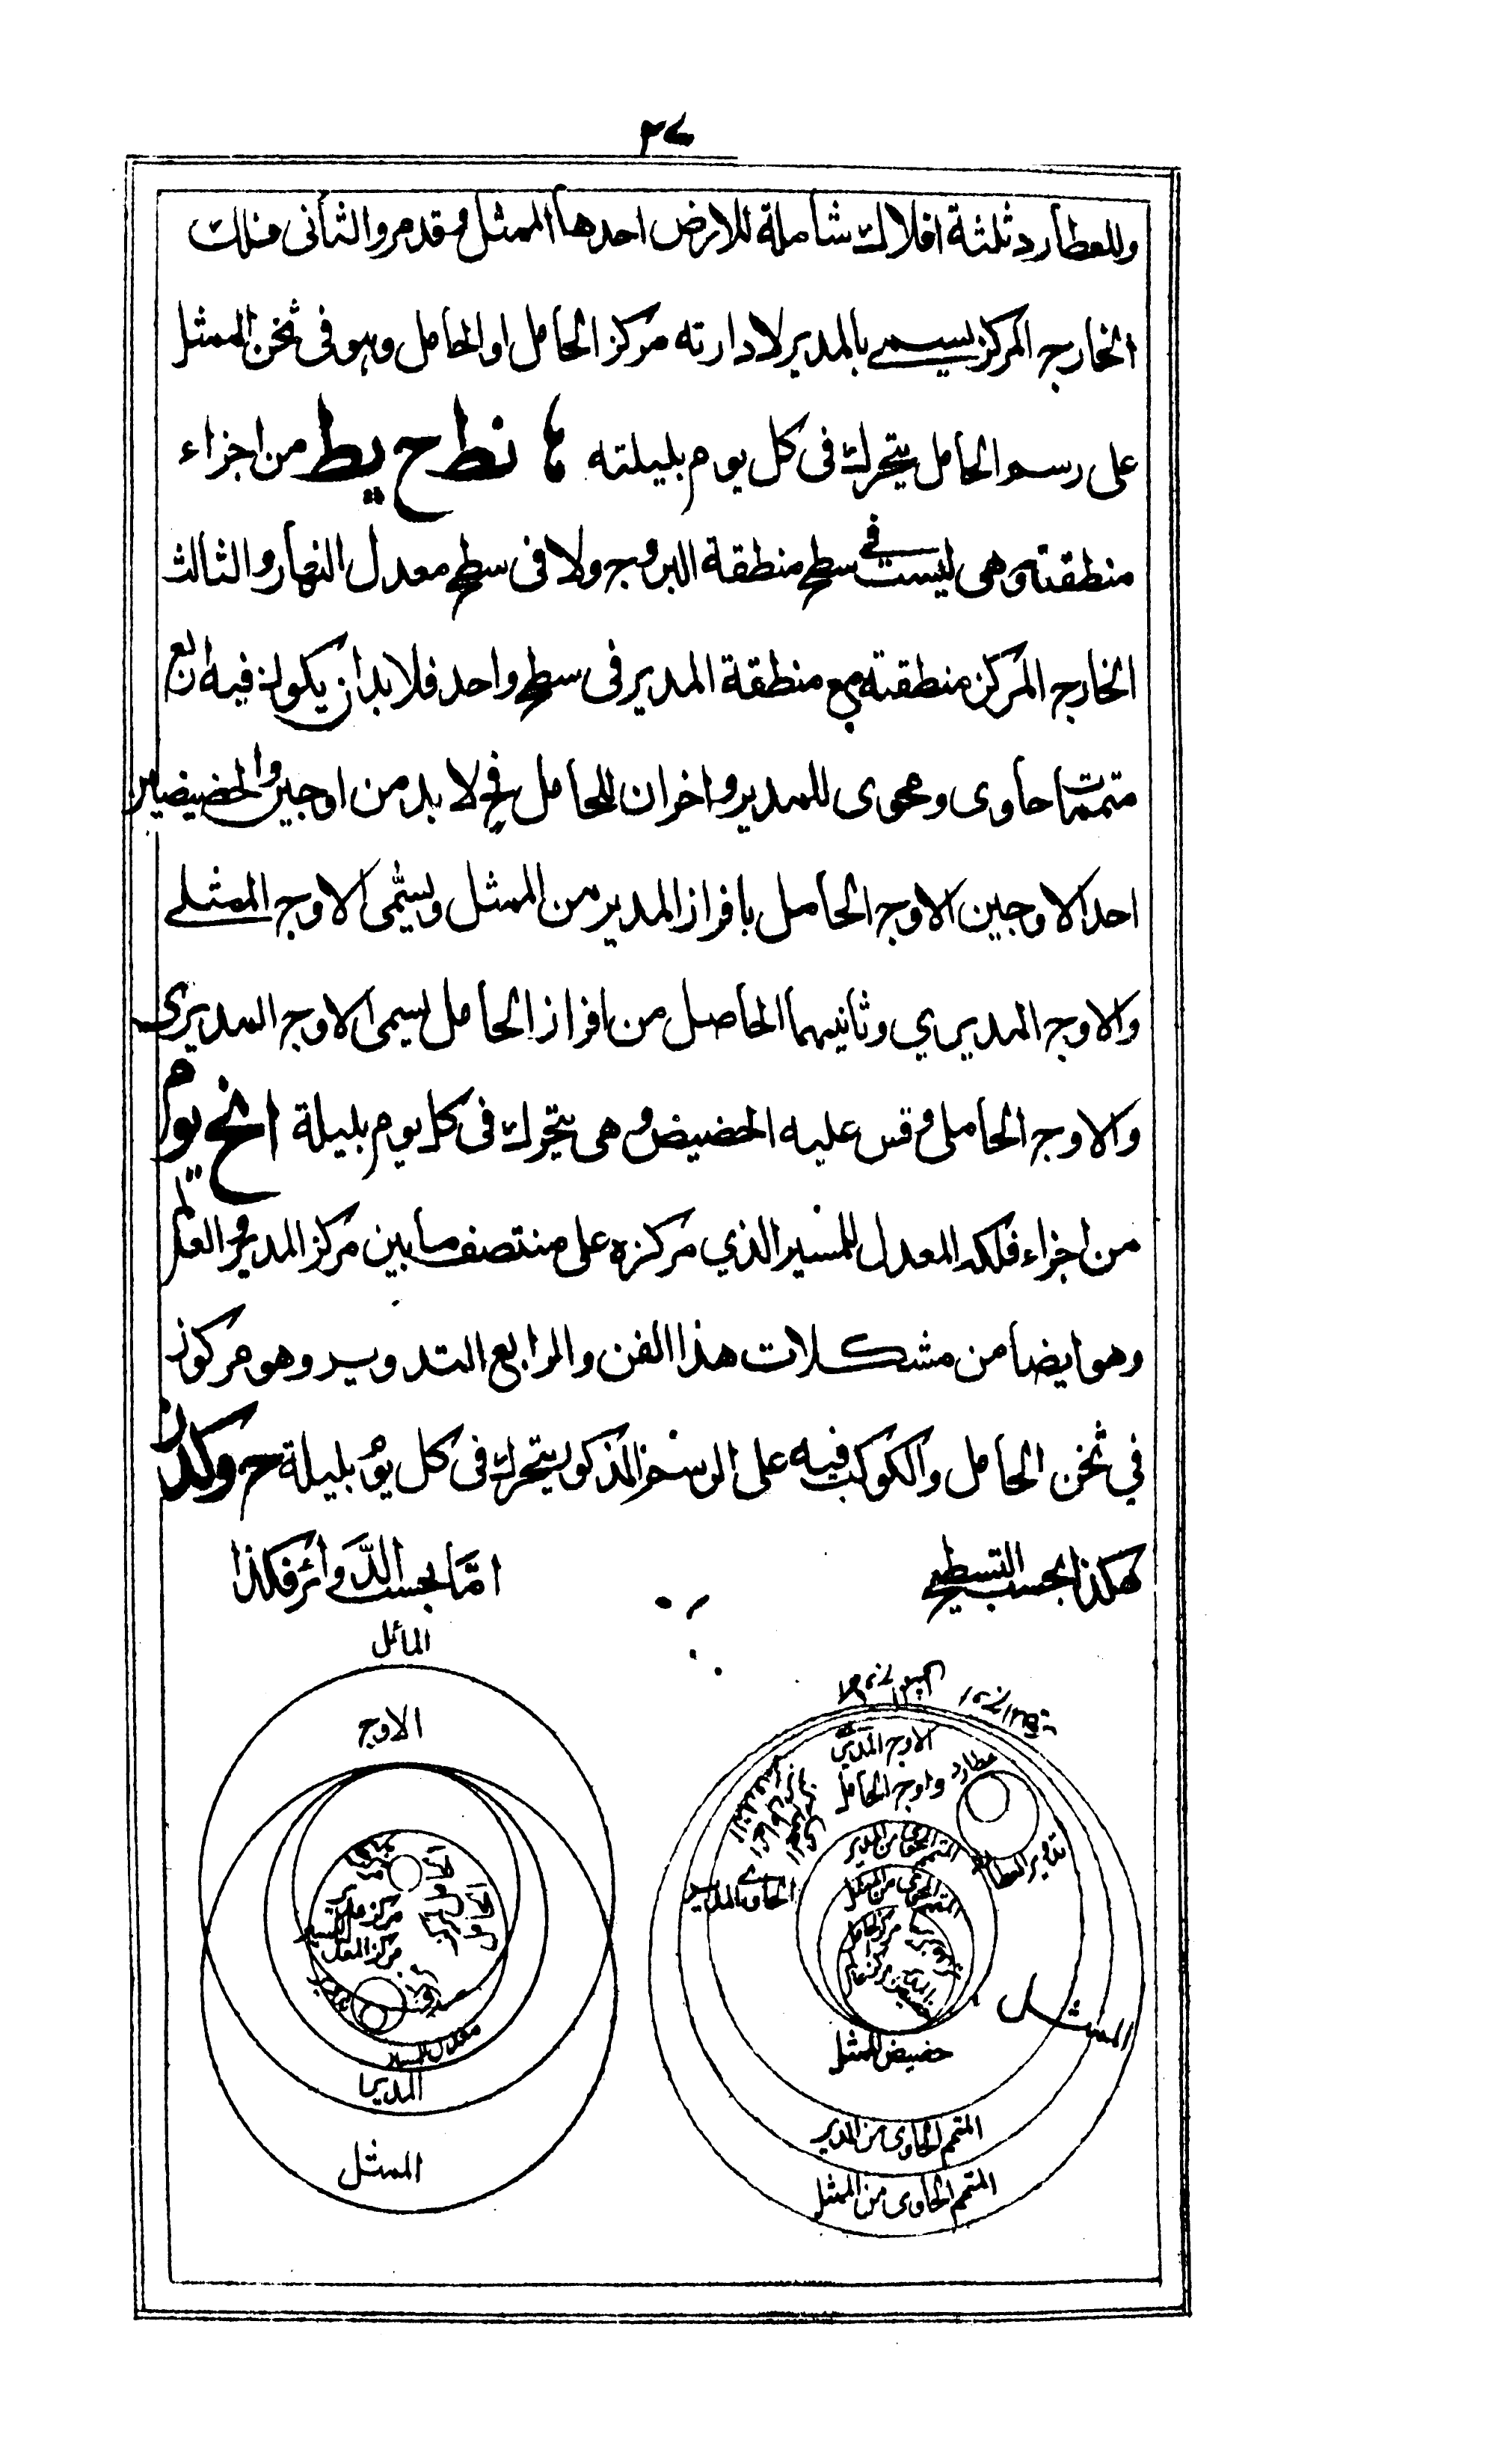 ٢٧
وللعطارد ثلثة افلاك شاملة للارض احدها الممثل وقد مر والثانى فلك
الخارج المركز يسمى بالمدير لادارته مركز الحامل او الحامل وهو فى ثخن الممثل
على رسم الحامل يتحرك فى كل يوم بليلته نط ح يط من اجزاء
منطقته وهى ليست فى سطح منطقة البروج ولا فى سطح معدل النهار والثالث
الخارج المركز منطقته مع منطقة المدير فى سطح واحد فلا بد ان يكون فيه اربع
متممات حاوى ومحوى للمدير واخران للحامل فح لا بد من اوجين والحضيضين
احد الاوجين الاوج الحامل بافراز المدير من الممثل ويسمّى الاوج الممثلے
والاوج المديري وثانيهما الحاصل من افراز الحامل يسمى الاوج المديرى
والاوج الحاملى وقس عليه الحضيض وهى يتحرك فى كل يوم بليلة ا نح يوم
من اجزاء فلكه المعدل للمسير الذي مركزه على منتصف ما بين مركز المدير والعالم
وهو ايضا من مشكلات هذا الفن والرابع التدوير وهو مركوز
في ثخن الحامل والكوكب فيه على الرسم المذكور يتحرك فى كل يوم بليلة ح و كد
هكذا بحسب التسطيح
امّا بحسب الدَّوائر فكذا
المائل
الاوج
مركز المعدل
معدل المسير
المدير
الممثل
الاوج المديرى
واوج الحامل
عطارد
تدوير العطارد
المتمم المحوى من المدير
المتمم المحوى من الممثل
مركز الحامل
حضيض الممثل
الممثل
المتمم الحاوى من المدير
المتمم الحاوى من الممثل